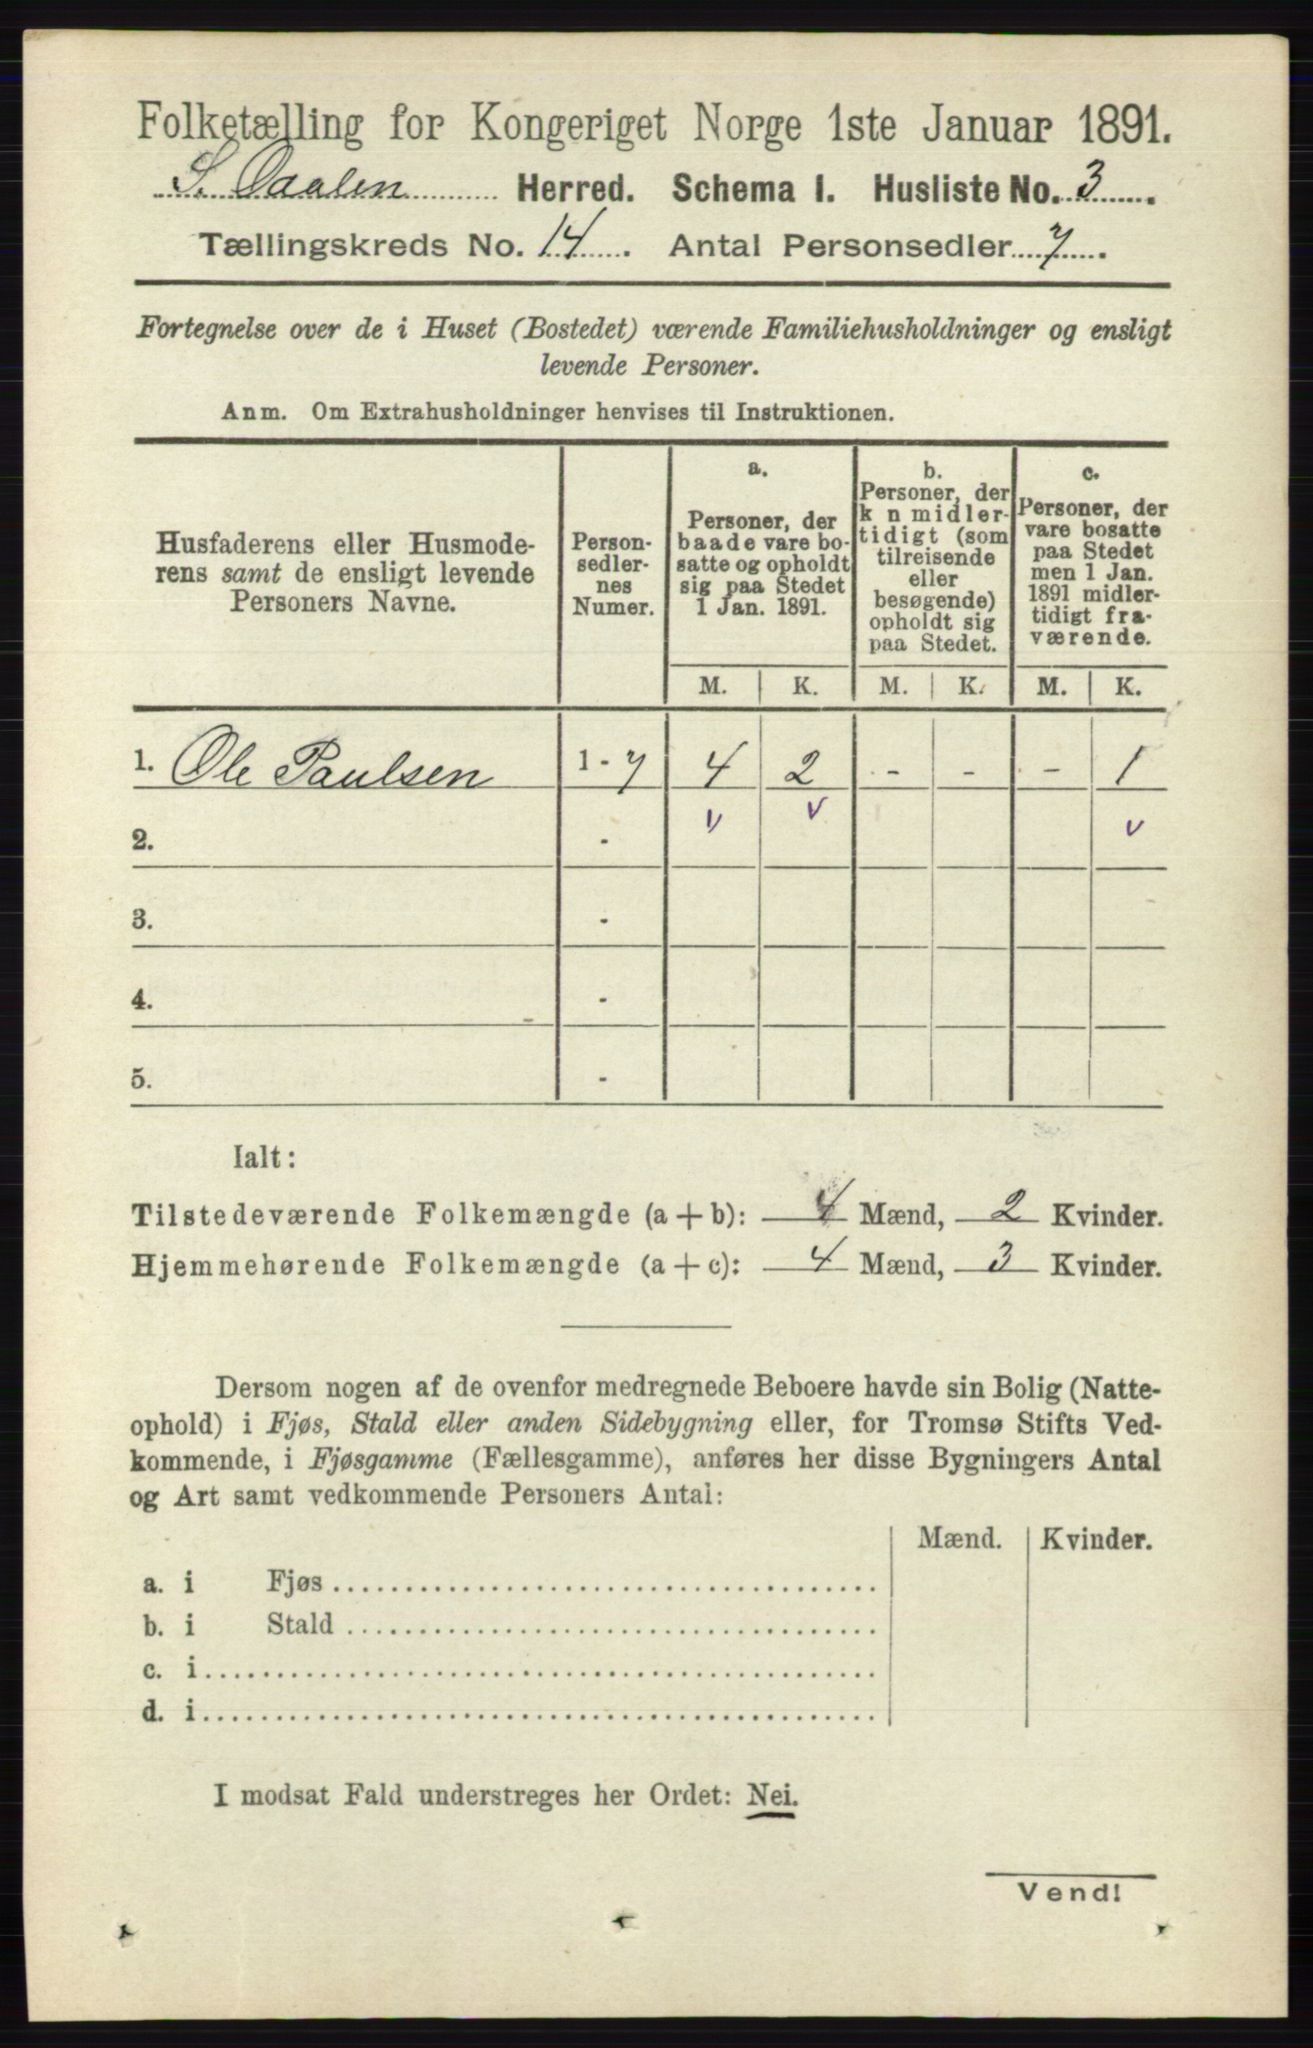 Folketælling for Kongeriget Norge 1ste Januar 1891.
S. Odalen Herred. Schema I. Husliste No. 3.
Tællingskreds No. 14. Antal Personsedler 7.
Fortegnelse over de i Huset (Bostedet) værende Familiehusholdninger og ensligt
levende Personer.
Anm. Om Extrahusholdninger henvises til Instruktionen.
Husfaderens eller Husmode-
rens samt de ensligt levende
Personers Navne.
Person-
sedler-
nes
Numer.
a.
Personer, der
baade vare bo-
satte og opholdt
sig paa Stedet
1 Jan. 1891.
b.
Personer, der
k n midler-
tidigt (som
tilreisende
eller
besøgende)
opholdt sig
paa Stedet.
c.
Personer, der
vare bosatte
paa Stedet
men 1 Jan.
1891 midler-
tidigt fra-
værende.
M. K. M. K. M. K.
1. Ole Paulsen 1 - 7 4 2 - - - 1
2. - v v v
3. -
4. -
5. -
Ialt:
Tilstedeværende Folkemængde (a + b): 4 Mænd, 2 Kvinder.
Hjemmehørende Folkemængde (a + c): 4 Mænd, 3 Kvinder.
Dersom nogen af de ovenfor medregnede Beboere havde sin Bolig (Natte-
ophold) i Fjøs, Stald eller anden Sidebygning eller, for Tromsø Stifts Ved-
kommende, i Fjøsgamme (Fællesgamme), anføres her disse Bygningers Antal
og Art samt vedkommende Personers Antal:
Mænd. Kvinder.
a. i Fjøs
b. i Stald
c. i
d. i
I modsat Fald understreges her Ordet: Nei.
Vend!